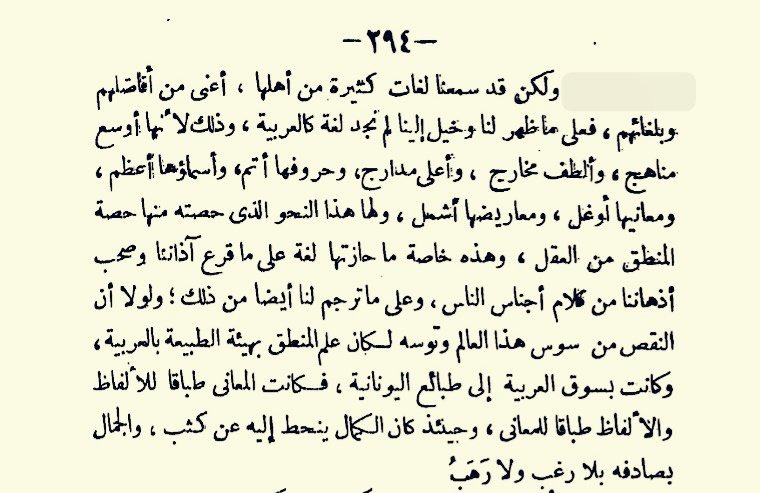 —٢٩٤—
ولكن قد سمعنا لغات كثيرة من أهلها ، أعنى من أفاضلهم
وبلغائهم ، فعلى ماظهر لنا وخيل إلينا لم نجد لغة كالعربية ، وذلك لأنها أوسع
مناهج ، وألطف مخارج ، وأعلى مدارج، وحروفها أتم، وأسماؤها أعظم ،
ومعانيها أوغل ، ومعاريضها أشمل ، ولها هذا النحو الذى حصته منها حصة
المنطق من العقل ، وهذه خاصة ما حازتها لغة على ما قرع آذاننا وصحب
أذهاننا من كلام أجناس الناس ، وعلى ماترجم لنا أيضا من ذلك ؛ ولولا أن
النقص من سوس هذا العالم وتوسه لكان علم المنطق بهيئة الطبيعة بالعربية ،
وكانت بسوق العربية إلى طبائع اليونانية ، فكانت المعانى طباقا للألفاظ
والألفاظ طباقا للمعانى ، وحينئذ كان الكمال ينحط إليه عن كثب ، والجمال
بصادفه بلا رغب ولا رَهَبُ